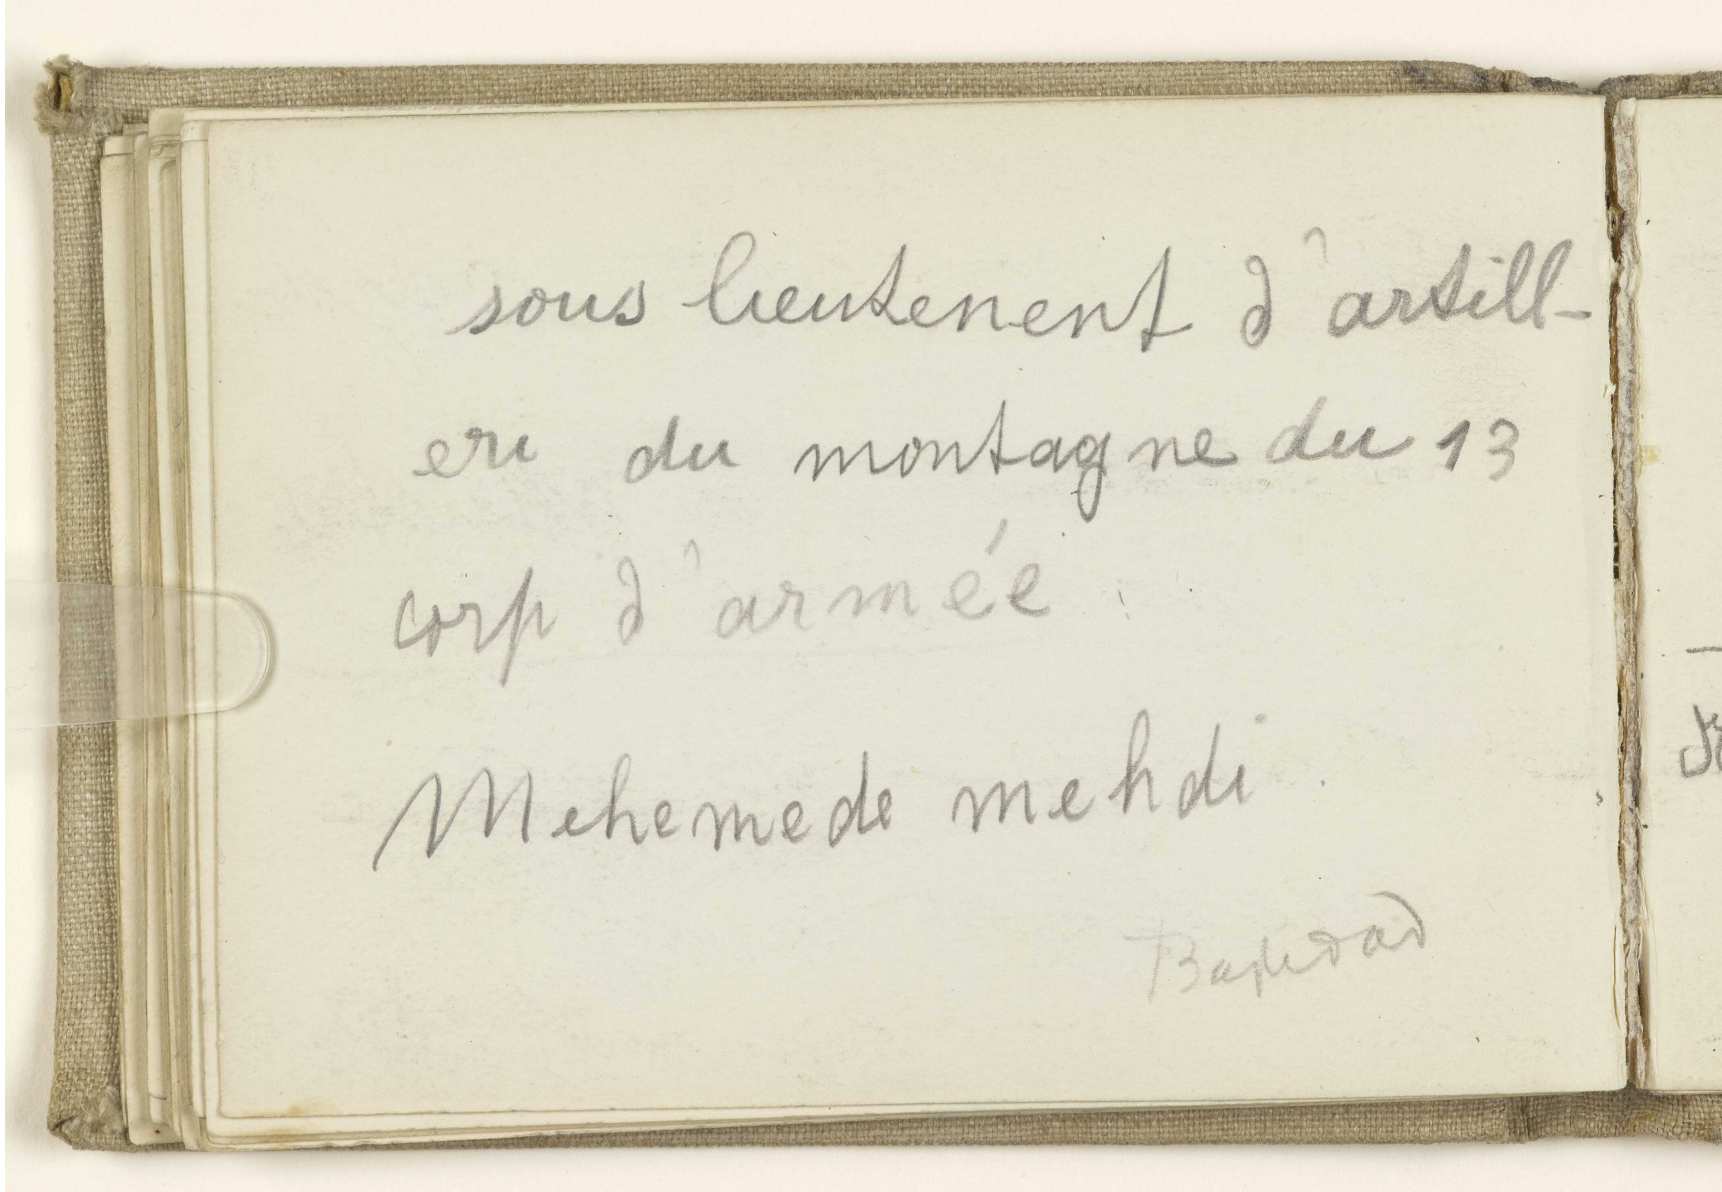 sous lieutenent d'artill-
eri du montagne du 13
corp d'armée.
Mehemede mehdi.
Baghdad